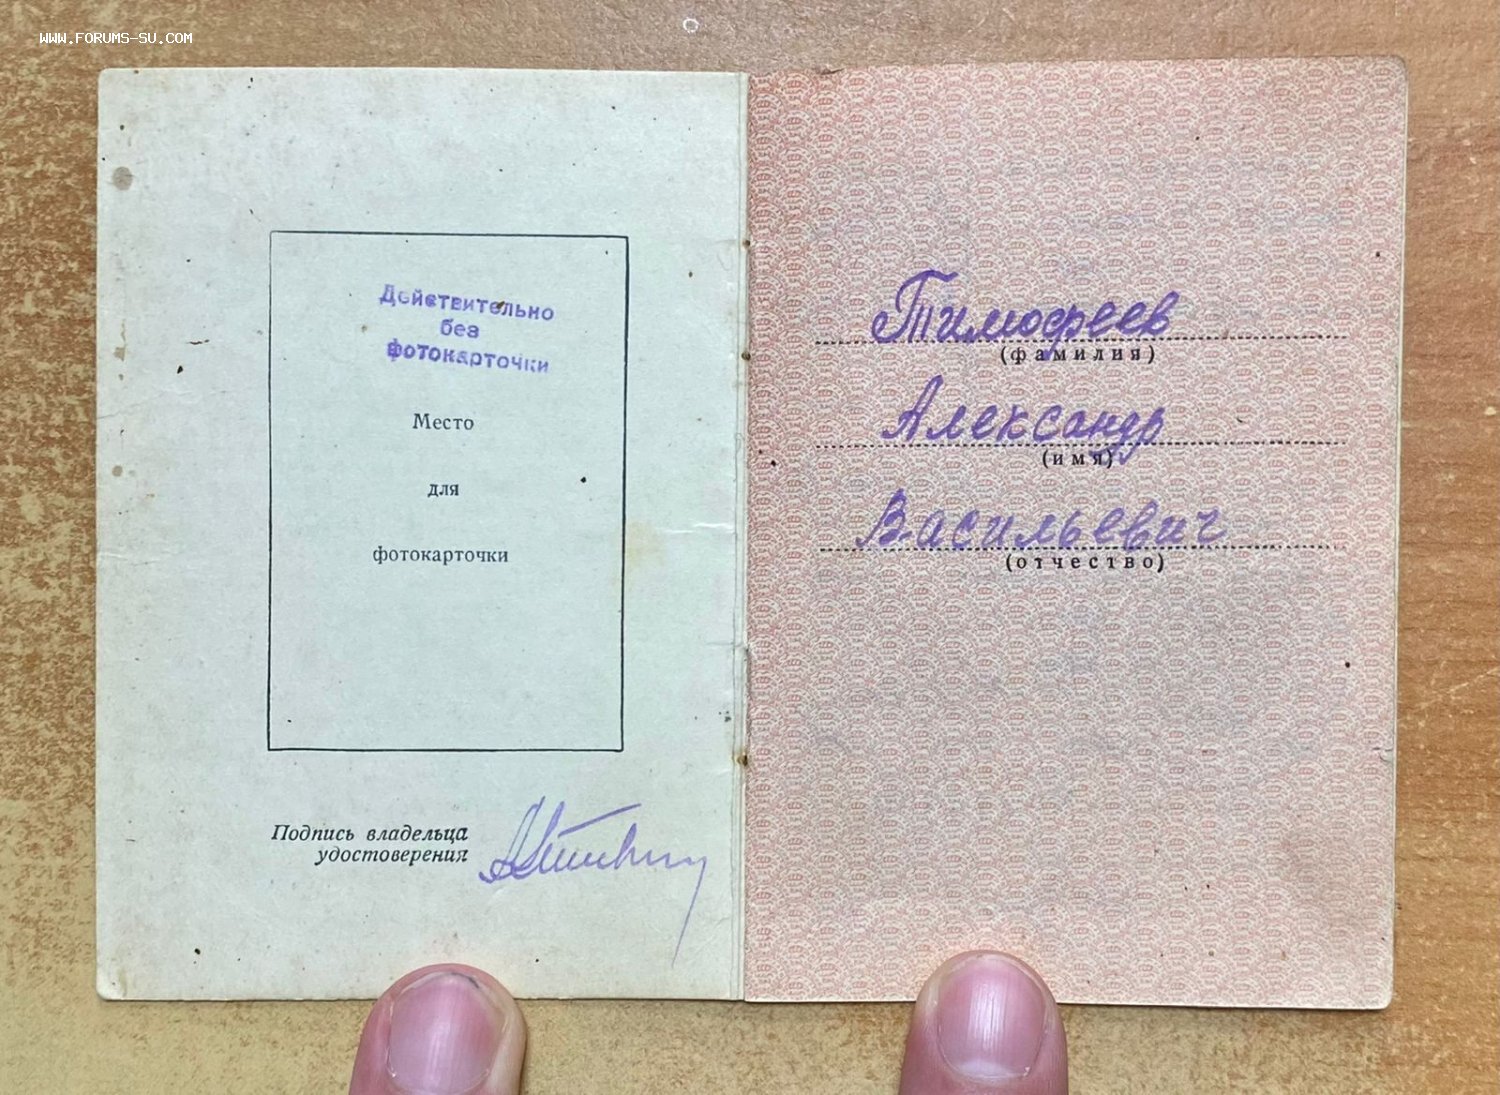 WWW.FORUMS-SU.COM
Действительно
без
фотокарточки
Место
для
фотокарточки
Подпись владельца
удостоверения
Тимофеев
(фамилия)
Александр
(имя)
Васильевич
(отчество)